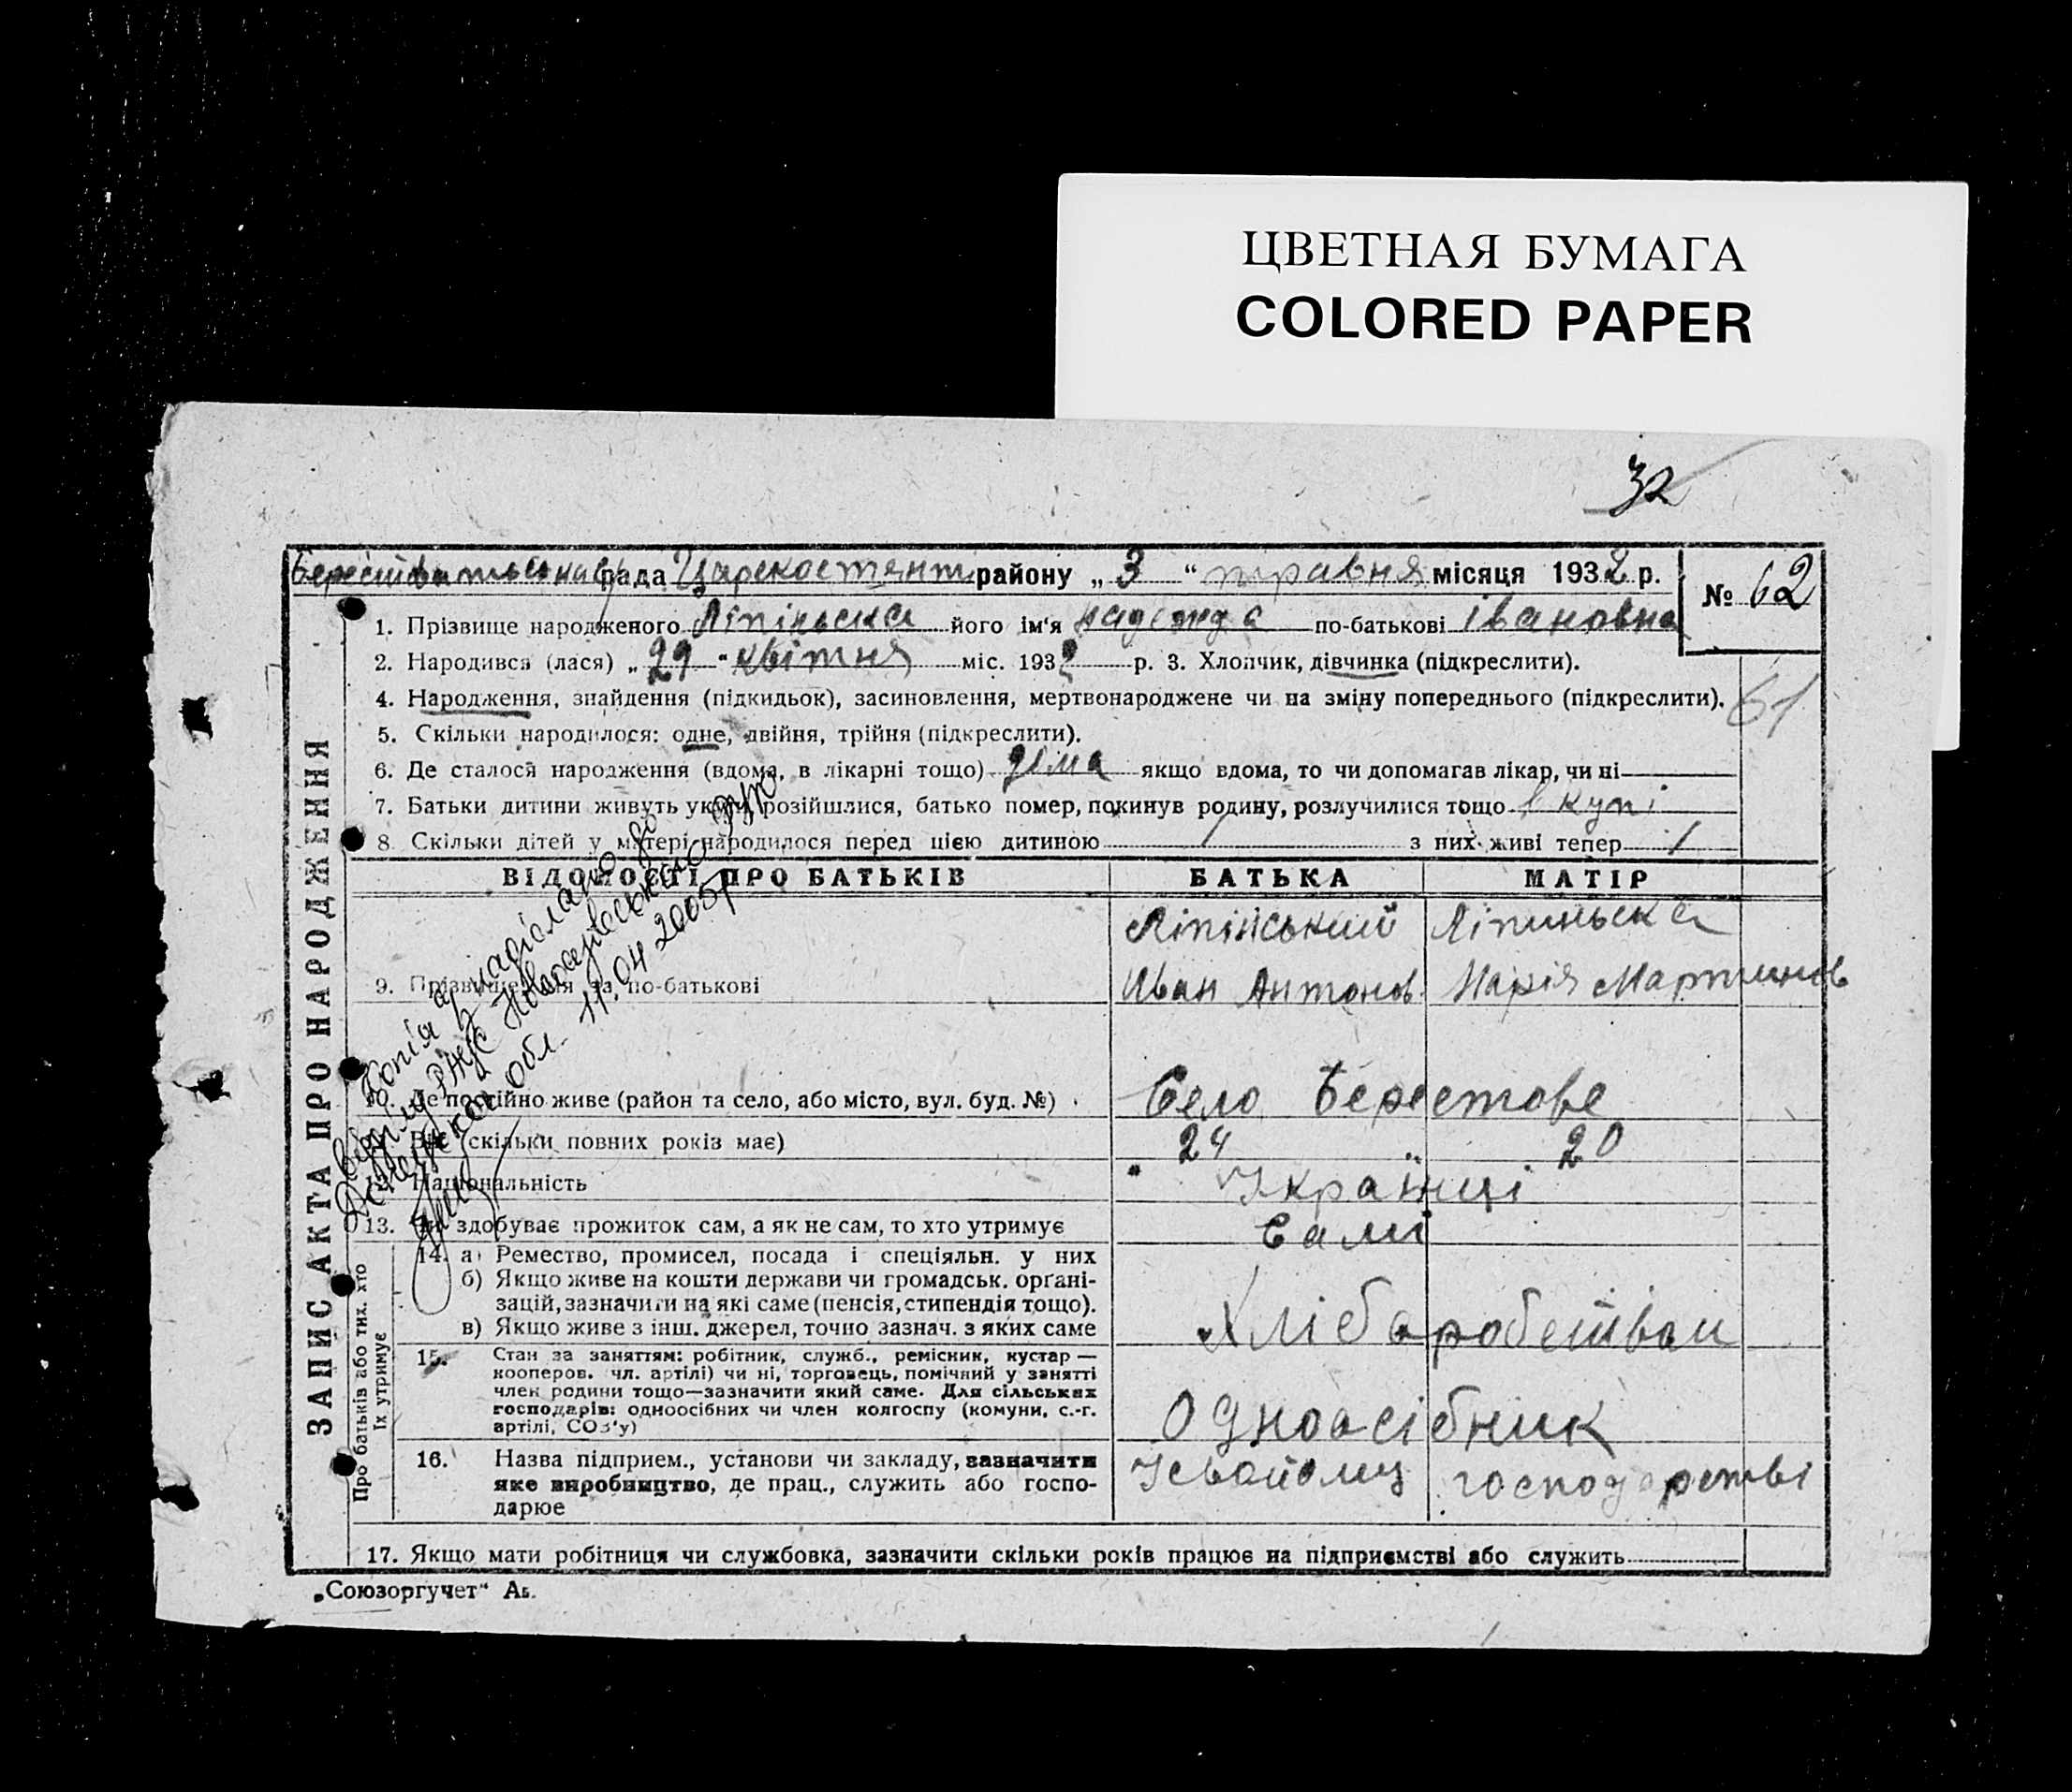 ЦВЕТНАЯ БУМАГА
COLORED PAPER
32
рада Царекостянт. району „3“ травня місяця 1932 р.
№ 62
1. Прізвище народженого Ліпіньска його ім'я надежда по-батькові івановна
2. Народився (лася) „29“ квітня міс. 1932 р. 3. Хлопчик, дівчинка (підкреслити).
4. Народження, знайдення (підкидьок), засиновлення, мертвонароджене чи на зміну попереднього (підкреслити).
61
5. Скільки народилося: одне, двійня, трійня (підкреслити).
6. Де сталося народження (вдома, в лікарні тощо) дома якщо вдома, то чи допомагав лікар, чи ні
7. Батьки дитини живуть укупі, розійшлися, батько помер, покинув родину, розлучилися тощо в купі
8 Скільки дітей у матері народилося перед цією дитиною 1 з них живі тепер 1
ЗАПИС АКТА ПРО НАРОДЖЕННЯ
ВІДОМОСТІ ПРО БАТЬКІВ БАТЬКА МАТІР
Ліпінський Ліпиньска
9. Прізвище, ім'я та по-батькові Иван Антонов. Марія Мартинов
10. Де постійно живе (район та село, або місто, вул. буд. №) Село Берестове
Вік (скільки повних років має) 24 20
12. Національність Українці
13. Чи здобуває прожиток сам, а як не сам, то хто утримує Сами
Про батьків або тих, хто їх утримує
14. а) Ремество, промисел, посада і спеціяльн. у них
б) Якщо живе на кошти держави чи громадськ. органі-
зацій, зазначити на які саме (пенсія, стипендія тощо).
в) Якщо живе з інш. джерел, точно зазнач. з яких саме Хлібаробством
15. Стан за заняттям: робітник, служб., ремісник, кустар —
кооперов. чл. артілі) чи ні, торговець, помічний у занятті
член родини тощо—зазначити який саме. Для сільських
господарів: одноосібних чи член колгоспу (комуни, с.-г.
артілі, СОЗ'у) Одноасібник
16. Назва підприєм., установи чи закладу, зазначити
яке виробництво, де прац., служить або госпо-
дарює Усвойому господарстві
17. Якщо мати робітниця чи службовка, зазначити скільки років працює на підприємстві або служить
„Союзоргучет“ Ав.
Копія а/з надіслано до
відділу РАЦС Новоазовського РУЮ
Донецької обл. 11.04.2005р